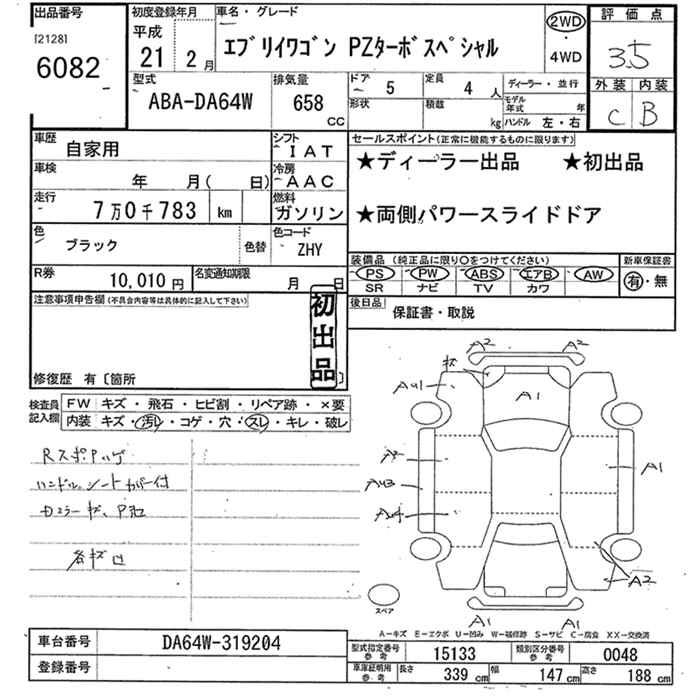 出品番号
[2128]
6082
初度登録年月
平成
21 2月
車名・グレード
エブリイワゴン PZターボスペシャル
2WD
・
4WD
評価点
3.5
外装 内装
C B
型式
ABA-DA64W
排気量
658
CC
ドア 5
定員 4人
形状
積載 kg
ディーラー・並行
モデル年式 年
ハンドル 左・右
車歴
自家用
シフト
IAT
車検
年 月( 日)
冷房
AAC
走行
7万0千783 km
燃料
ガソリン
色
ブラック
色替
色コード
ZHY
R券
10,010円
名変通知期限
月 日
セールスポイント(正常に機能するものに限ります)
★ディーラー出品 ★初出品
★両側パワースライドドア
装備品 (純正品に限り○をつけてください)
PS PW ABS エアB AW
SR ナビ TV カワ
新車保証書
有・無
後日品
保証書・取説
注意事項申告欄(不具合内容等は具体的に記入して下さい)
初出品
修復歴 有〔箇所 〕
検査員記入欄
FW キズ・飛石・ヒビ割・リペア跡・×要
内装 キズ・汚レ・コゲ・穴・スレ・キレ・破レ
ハンドル、シートカバー付
A2 A2
キズ
AU1
A1
A1
AU3
A2
A1 A1
スペア
A-キズ E-エクボ U-凹み W-補修跡 S-サビ C-腐食 XX-交換済
車台番号
DA64W-319204
登録番号
型式指定番号参考
15133
類別区分番号参考
0048
車庫証明用参考
長さ 339cm
幅 147cm
高さ 188cm